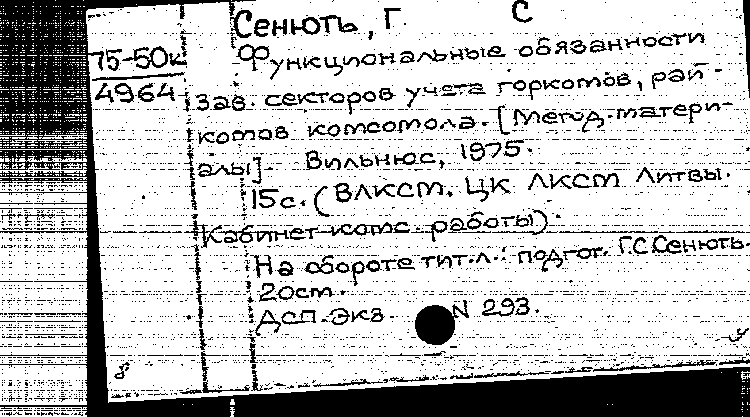 Сенють, Г С
75-50к
4964
Функциональные обязанности
зав. секторов учета горкомов, рай-
комов комсомола. [Метод. матери-
алы] Вильнюс, 1975.
15с. (ВЛКСМ. ЦК ЛКСМ Литвы.
Кабинет комс. работы).
На обороте тит. л.: подгот. Г.С. Сенють.
20см.
ДСП. Экз. N 293.